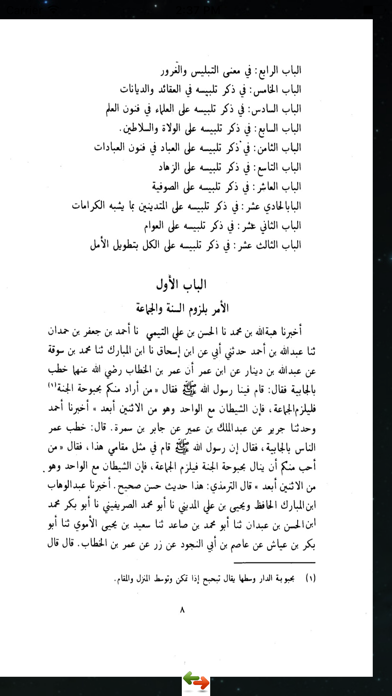 الباب الرابع: في معنى التبليس والغرور
الباب الخامس: في ذكر تلبيسه في العقائد والديانات
الباب السادس: في ذكر تلبيسه على العلماء في فنون العلم
الباب السابع: في ذكر تلبيسه على الولاة والسلاطين.
الباب الثامن: في ذكر تلبيسه على العباد في فنون العبادات
الباب التاسع: في ذكر تلبيسه على الزهاد
الباب العاشر: في ذكر تلبيسه على الصوفية
البابالحادي عشر: في ذكر تلبيسه على المتدينين بما يشبه الكرامات
الباب الثاني عشر: في ذكر تلبيسه على العوام
الباب الثالث عشر: في ذكر تلبيسه على الكل بتطويل الأمل
الباب الأول
الأمر بلزوم السنة والجماعة
أخبرنا هبةالله بن محمد نا الحسن بن علي التيمي نا أحمد بن جعفر بن حمدان
ثنا عبدالله بن أحمد حدثني أبي عن ابن إسحاق نا ابن المبارك ثنا محمد بن سوقة
عن عبدالله بن دينار عن ابن عمر أن عمر بن الخطاب رضي الله عنهما خطب
بالجابية فقال: قام فينا رسول الله ﷺ فقال «من أراد منكم بحبوحة الجنة(١)
فليلزمالجماعة، فإن الشيطان مع الواحد وهو من الاثنين أبعد» أخبرنا أحمد
وحدثنا جرير عن عبدالملك بن عمير عن جابر بن سمرة. قال: خطب عمر
الناس بالجابية، فقال إن رسول الله ﷺ قام في مثل مقامي هذا، فقال «من
أحب منكم أن ينال بحبوحة الجنة فيلزم الجماعة، فإن الشيطان مع الواحد وهو
من الاثنين أبعد» قال الترمذي: هذا حديث حسن صحيح. أخبرنا عبدالوهاب
ابن المبارك الحافظ ويحيى بن علي المديني نا أبو محمد الصريفيني نا أبو بكر محمد
ابن الحسن بن عبدان ثنا أبو محمد بن صاعد ثنا سعيد بن يحيى الأموي ثنا أبو
بكر بن عياش عن عاصم بن أبي النجود عن زر عن عمر بن الخطاب. قال قال
(١) بحبوبة الدار وسطها يقال تبحبح إذا تمكن وتوسط المنزل والمقام.
٨